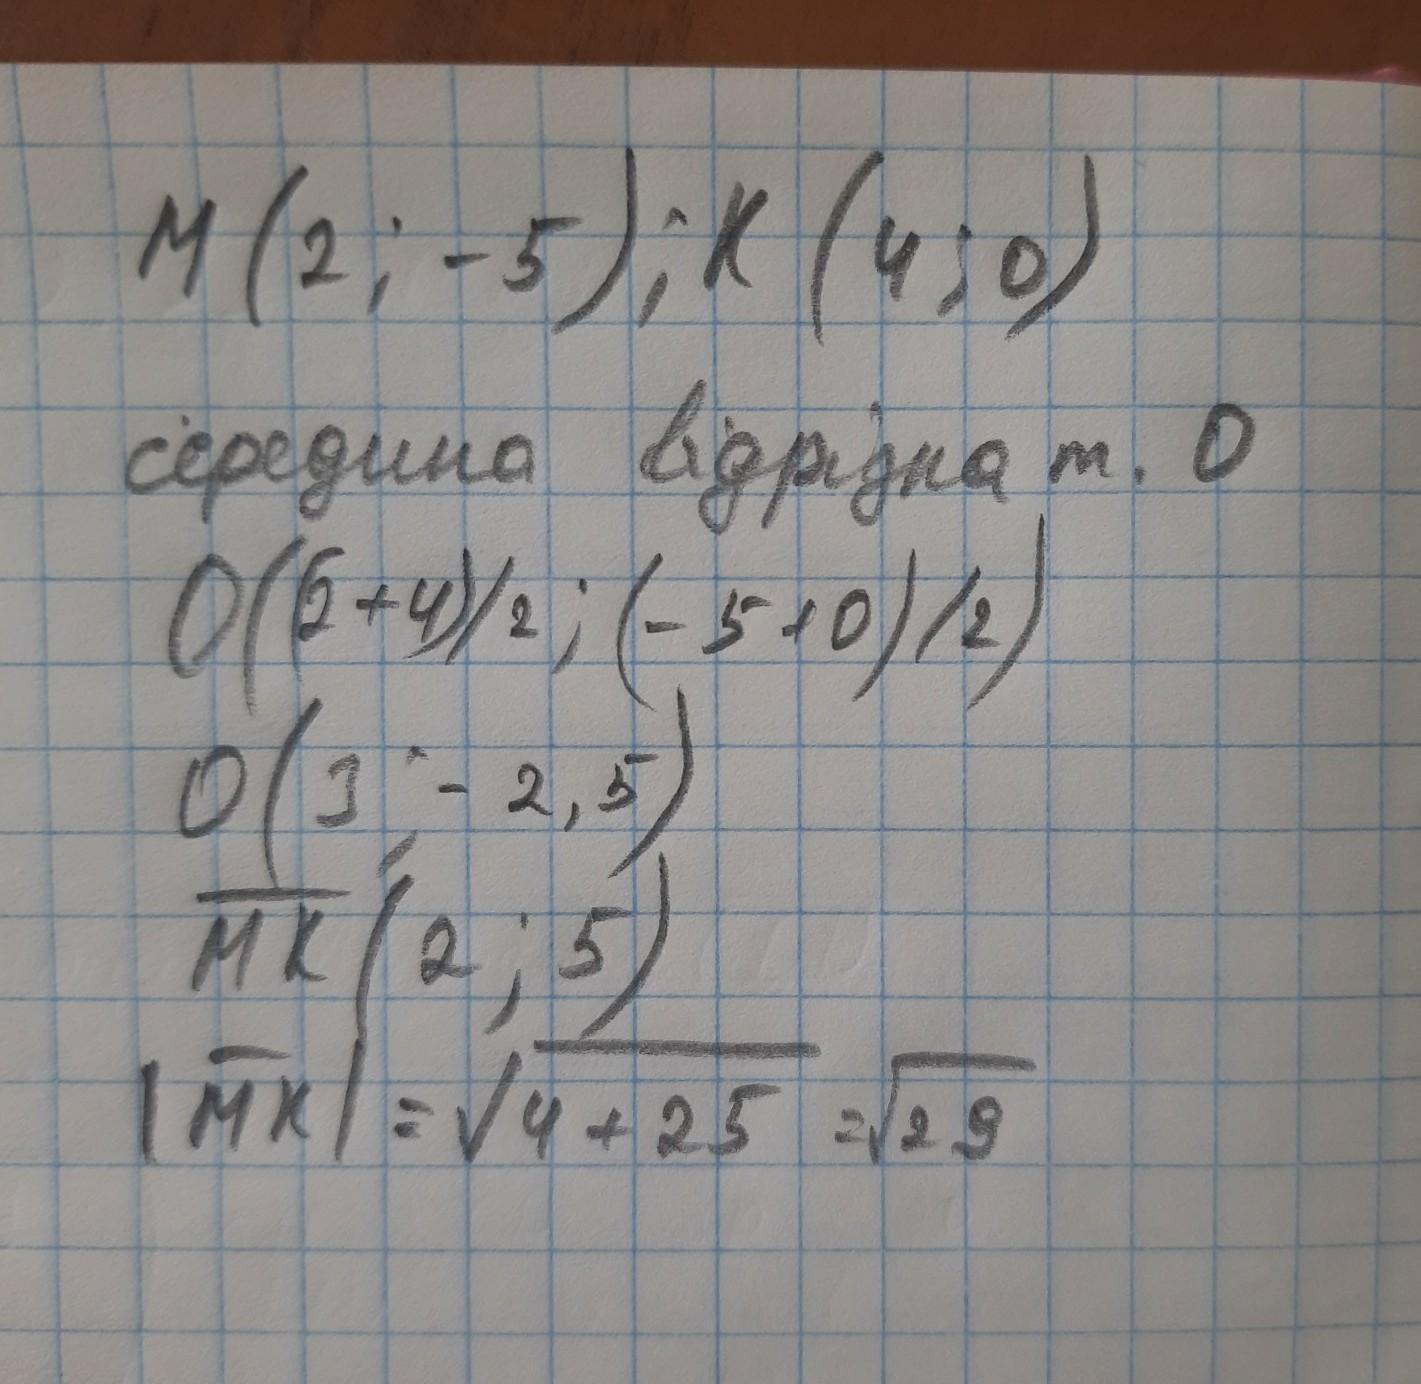 M(2;-5); K(4;0)
середина відрізка т. О
O((2+4)/2; (-5+0)/2)
O(3;-2,5)
M̅K̅(2;5)
|M̅K̅| = √4+25 = √29